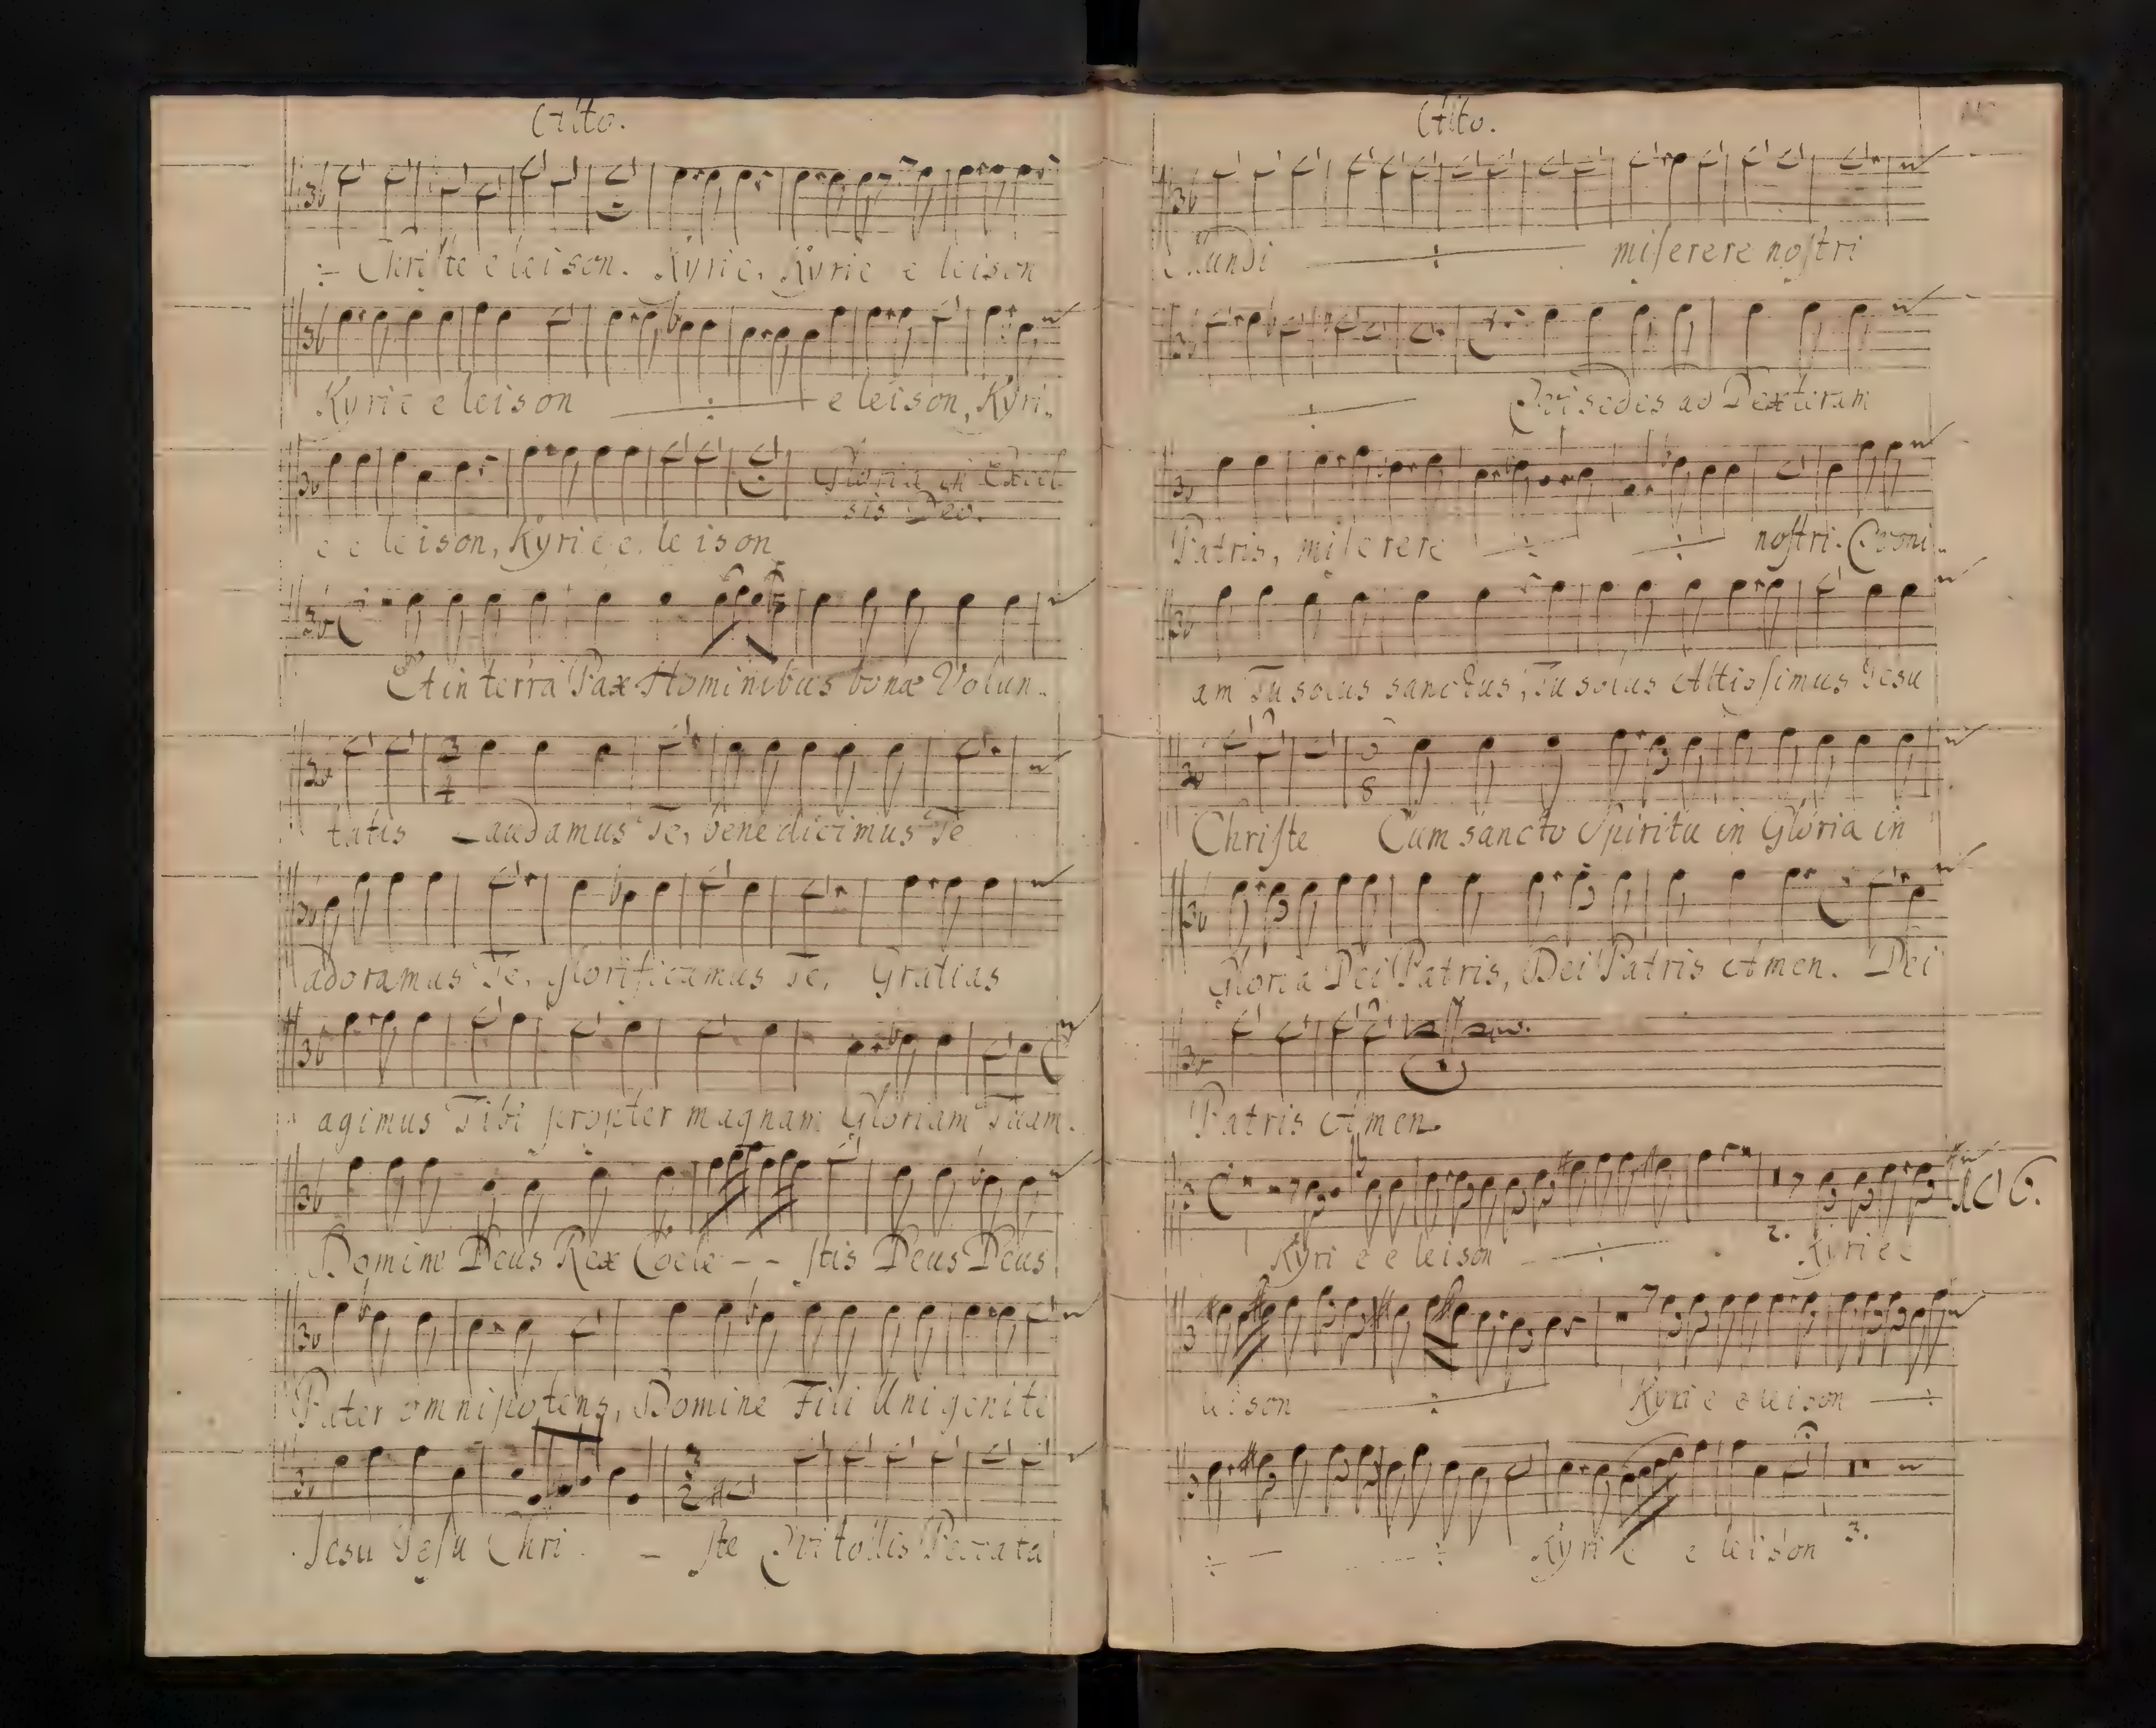 Alto.
Christe eleison. Kyrie, Kyrie e leison
Kyrie e leison e leison, Kyri..
e e leison, Kyrie e leison
Gloria in Excel
sis Deo.
Et in terra Pax Hominibus bonæ Volun..
3
4
tatis Laudamus Te, benedicimus Te
adoramus Te, glorificamus Te, Gratias
agimus Tibi propter magnam Gloriam Tuam.
Domine Deus Rex Coele - - stis Deus Deus
Pater omnipotens, Domine Fili Unigenite
3
2
Jesu Jesu Chri - ste Qui tollis Peccata
Alto.
Mundi miſerere noſtri
Qui sedes ad Dexteram
Patris, miſerere noſtri. Quoni..
am Tu solus sanctus, Tu solus Altiſsimus Jesu
8
Chriſte Cum sancto Spiritu in Gloria in
Gloria Dei Patris, Dei Patris Amen. Dei
Patris Amen.
Kyri e e leison 2. Kyrie e
leison Kyrie e leison
Kyri e e leison 3.